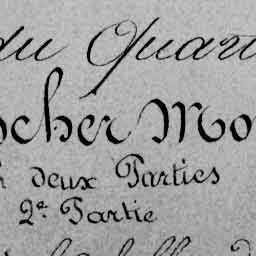 du Quart
ocher Mo
deux Parties
2e Partie